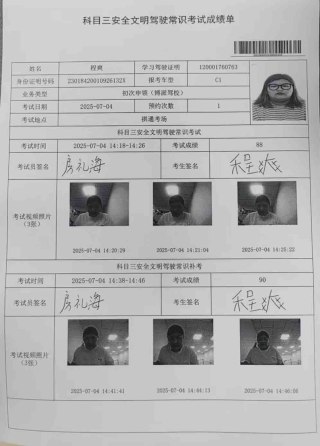 科目三安全文明驾驶常识考试成绩单
姓名 程爽 学习驾驶证明 120001760763
身份证明号码 230184200109261328 报考车型 C1
业务类型 初次申领（博淑驾校）
考试日期 2025-07-04 预约次数 1
考试地点 拱通考场
科目三安全文明驾驶常识考试
考试时间 2025-07-04 14:18-14:26 考试成绩 88
考试员签名 房礼海 考生签名 程爽
考试视频照片
（3张）
2025-07-04 14:20:29 2025-07-04 14:21:04 2025-07-04 14:25:22
科目三安全文明驾驶常识补考
考试时间 2025-07-04 14:38-14:46 考试成绩 90
考试员签名 房礼海 考生签名 程爽
考试视频照片
（3张）
2025-07-04 14:41:41 2025-07-04 14:44:13 2025-07-04 14:46:08